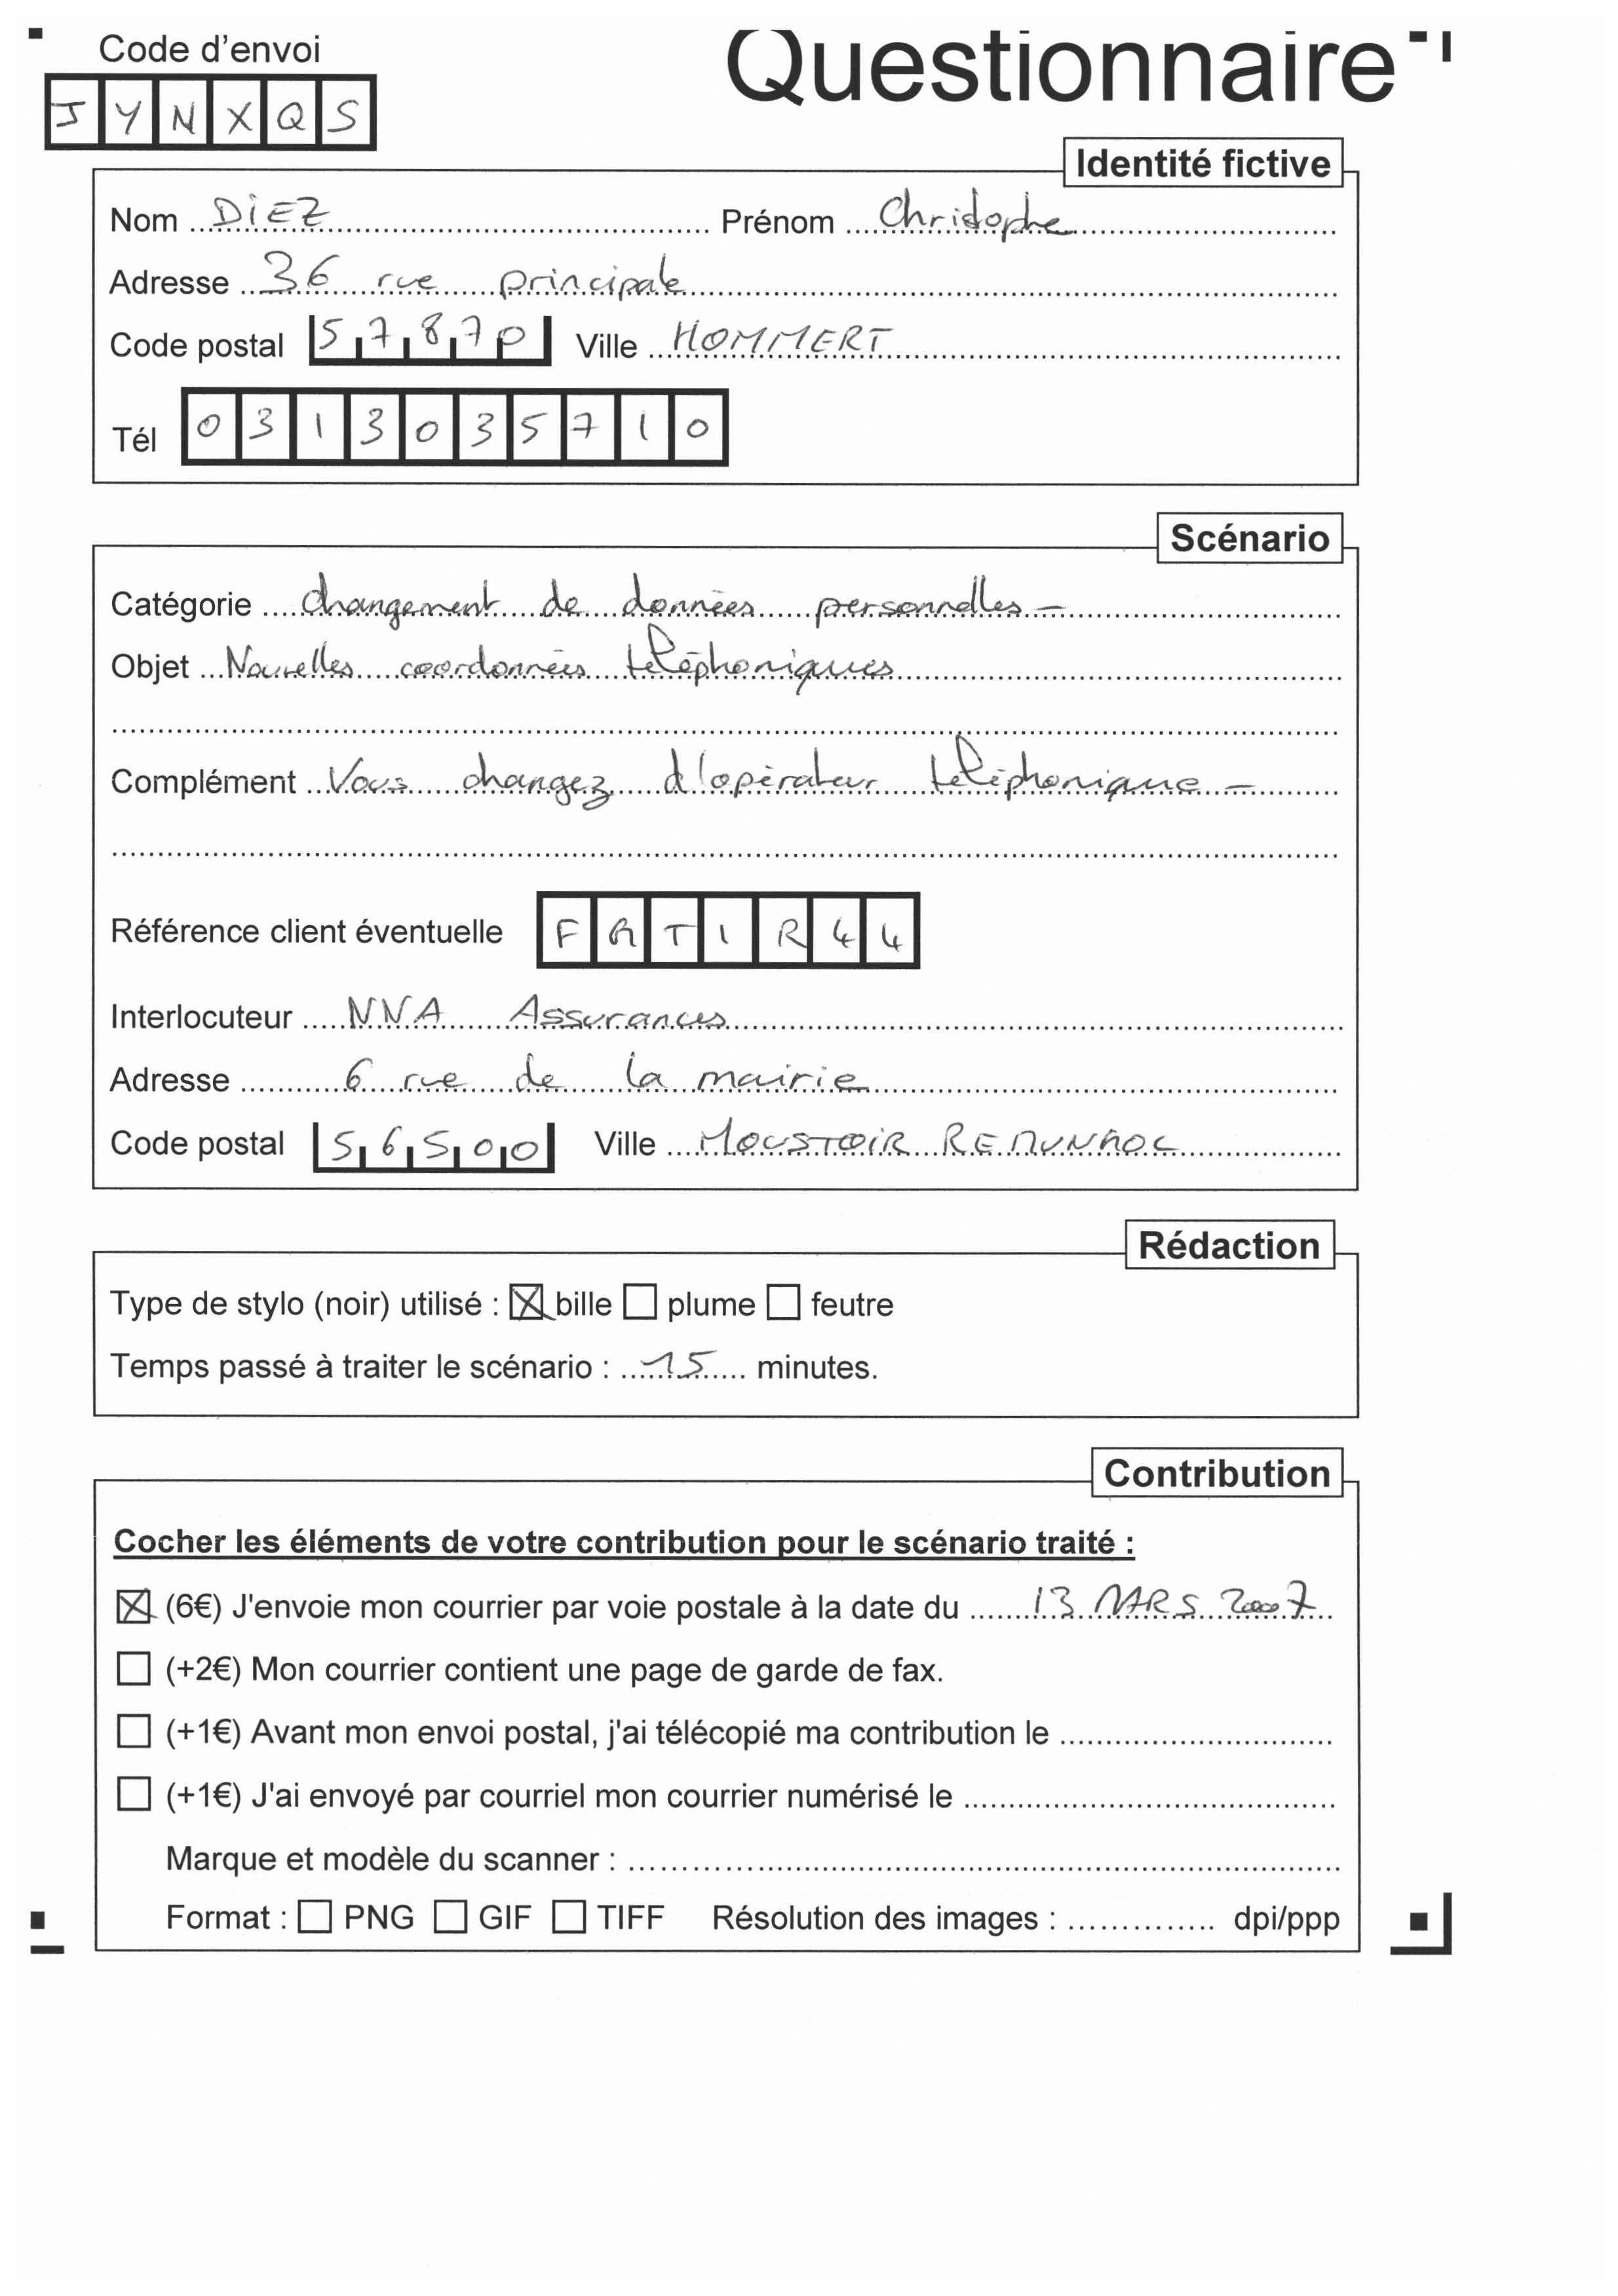 Code d'envoi
JYNXQS
Questionnaire
Identité fictive
Nom DiEZ Prénom Christophe
Adresse 36 rue principale
Code postal 57870 Ville HOMMERT
Tél 0313035710
Scénario
Catégorie changement de données personnelles -
Objet Nouvelles coordonnées téléphoniques
Complément Vous changez d'opérateur téléphonique -
Référence client éventuelle FRTIR44
Interlocuteur NNA Assurances
Adresse 6 rue de la mairie
Code postal 56500 Ville MOUSTOIR REMUNGOL
Rédaction
Type de stylo (noir) utilisé : ☒ bille ☐ plume ☐ feutre
Temps passé à traiter le scénario : 15 minutes.
Contribution
Cocher les éléments de votre contribution pour le scénario traité :
☒ (6€) J'envoie mon courrier par voie postale à la date du 13 MARS 2007
☐ (+2€) Mon courrier contient une page de garde de fax.
☐ (+1€) Avant mon envoi postal, j'ai télécopié ma contribution le
☐ (+1€) J'ai envoyé par courriel mon courrier numérisé le
Marque et modèle du scanner :
Format : ☐ PNG ☐ GIF ☐ TIFF Résolution des images : dpi/ppp